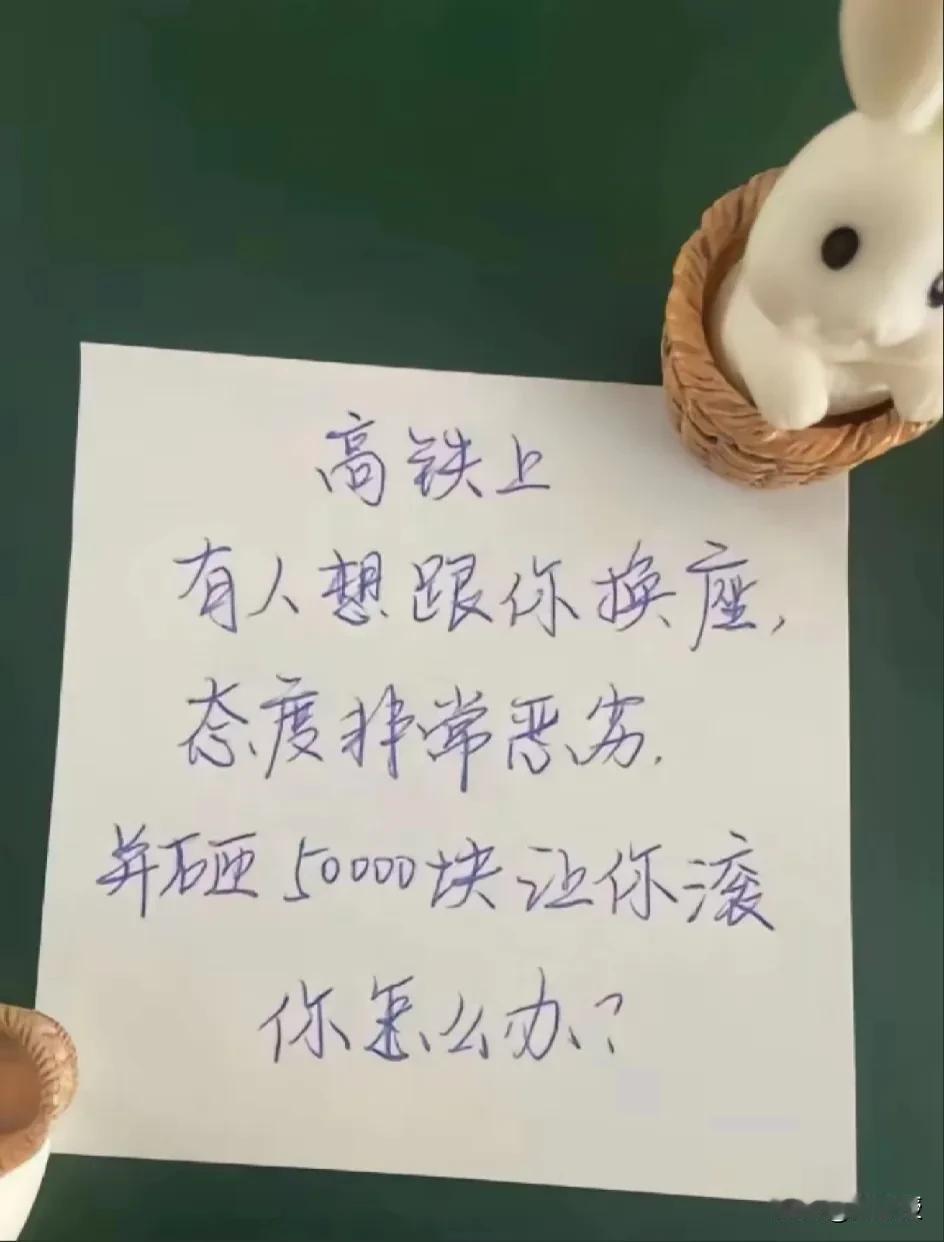 高铁上
有人想跟你换座，
态度非常恶劣.
并砸50000块让你滚
你怎么办？